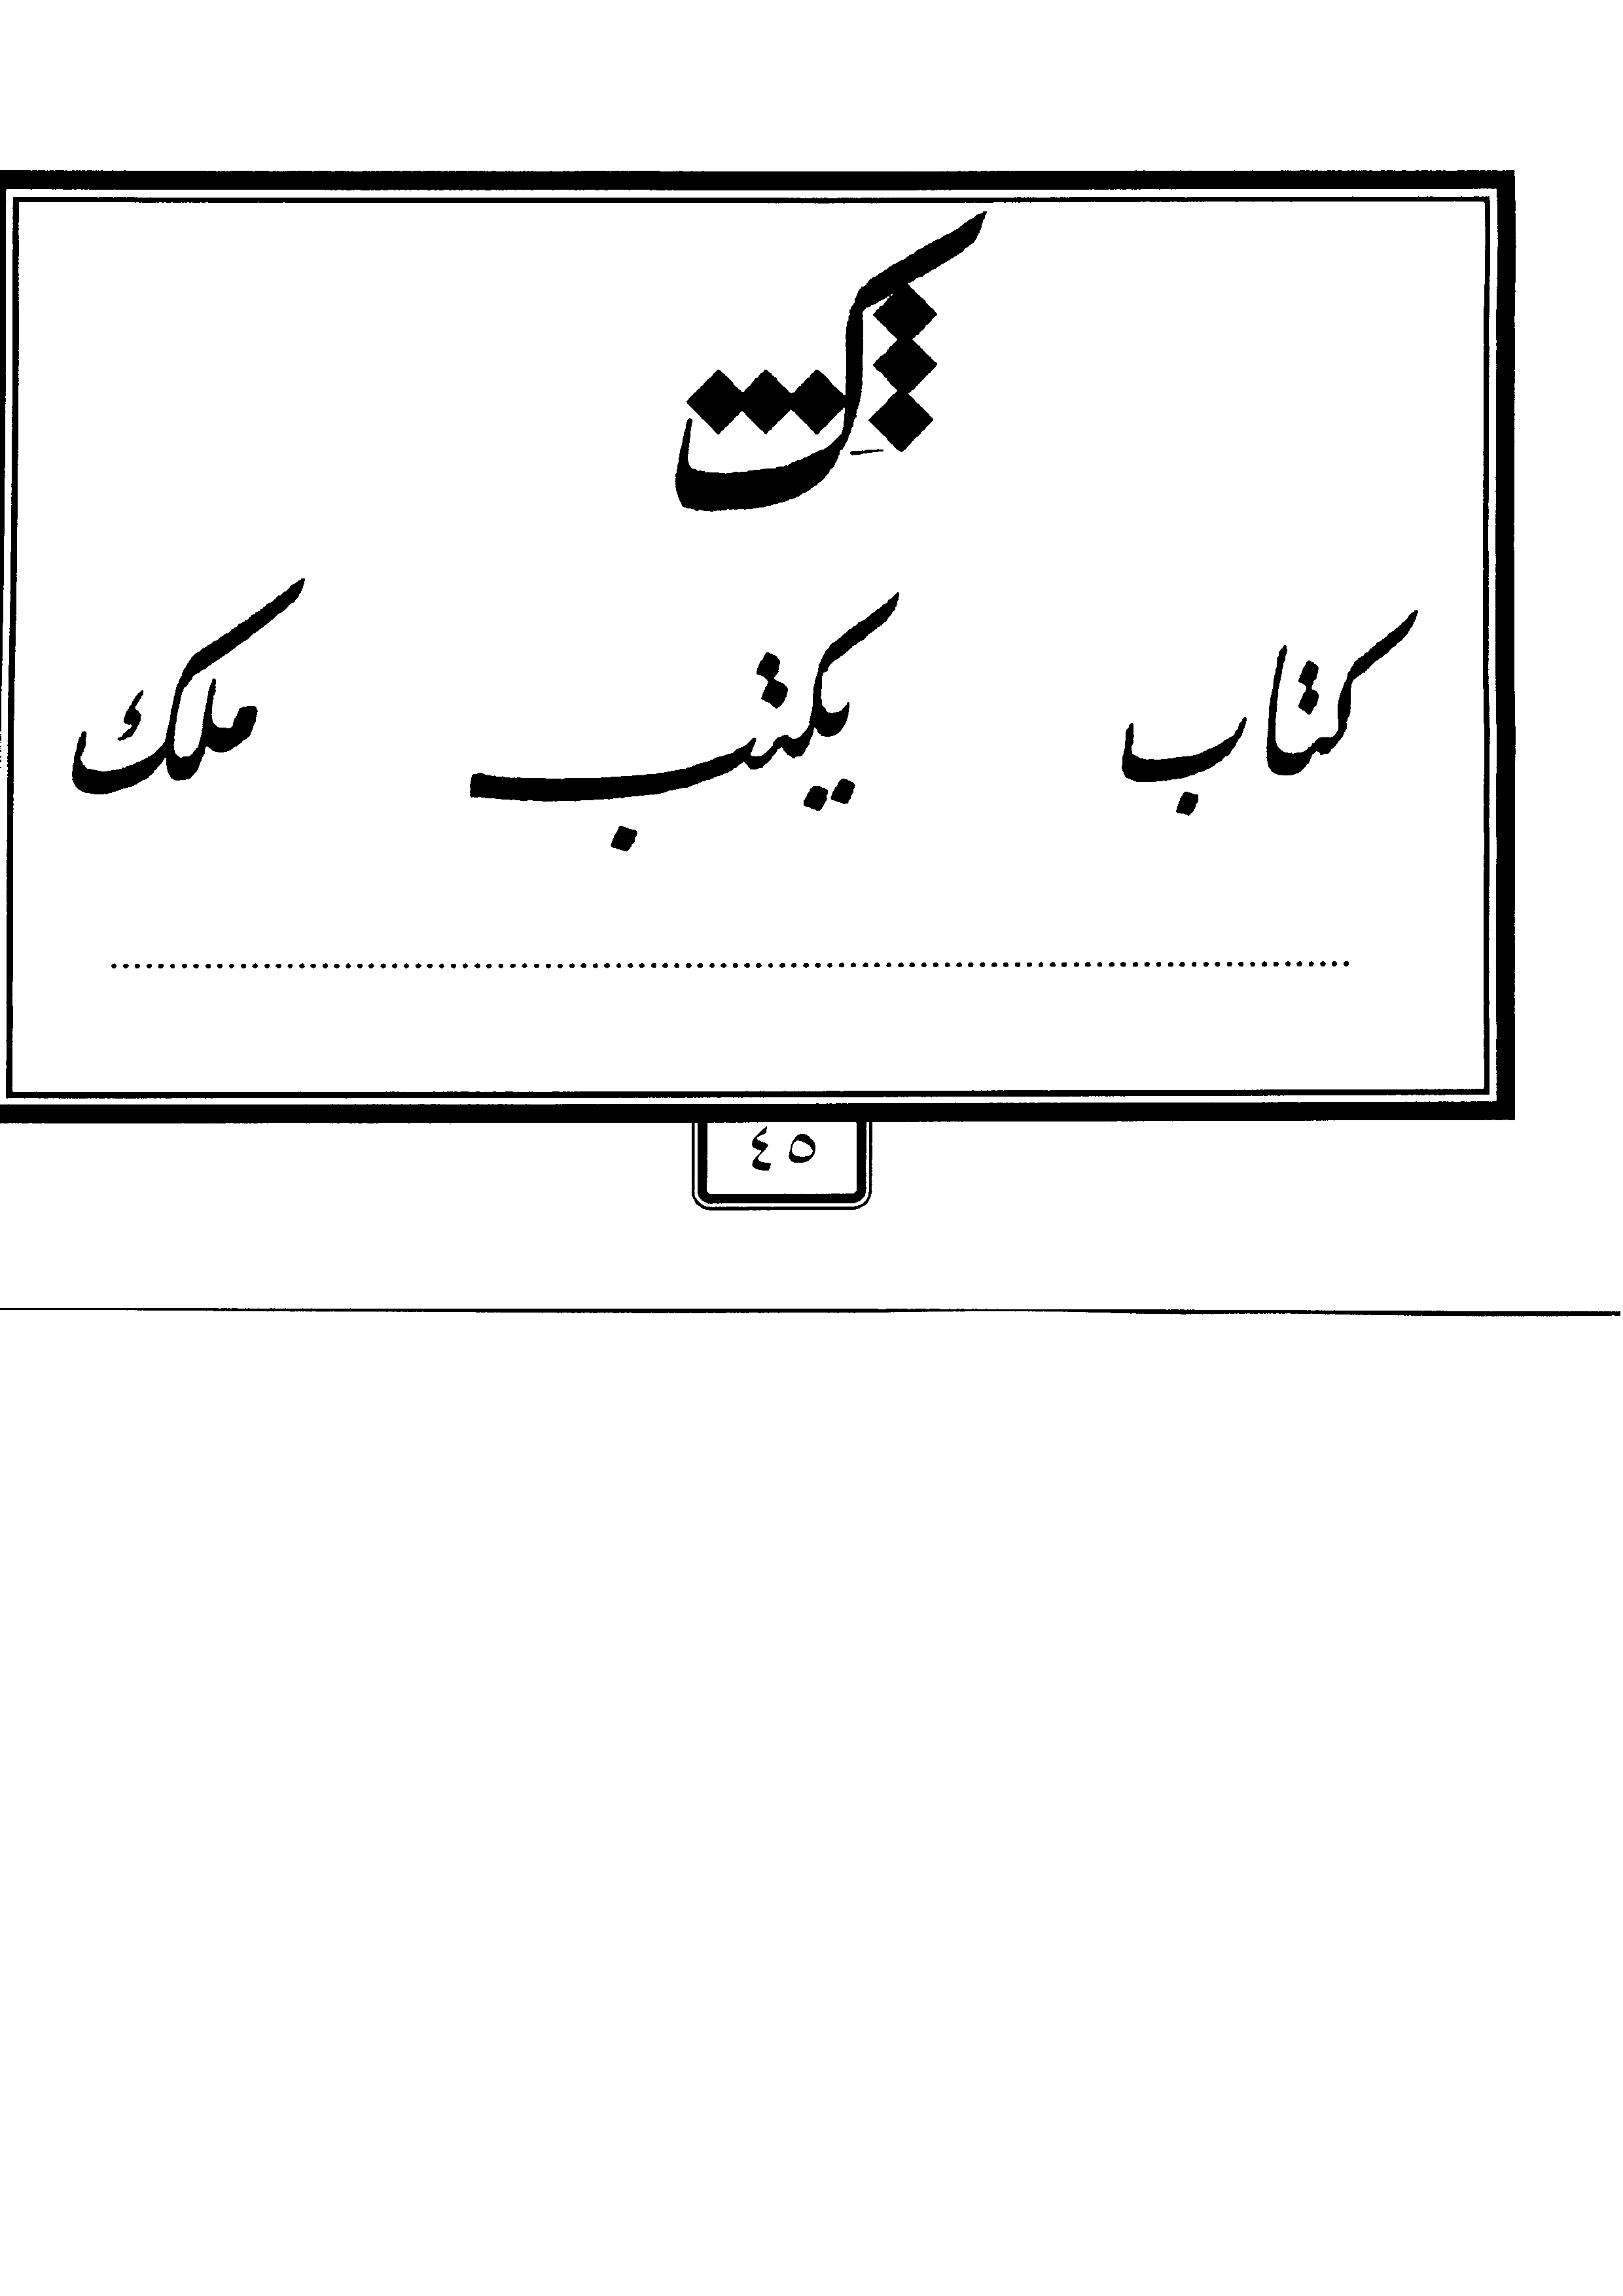 ک
كتاب يكتب ملك
٤٥